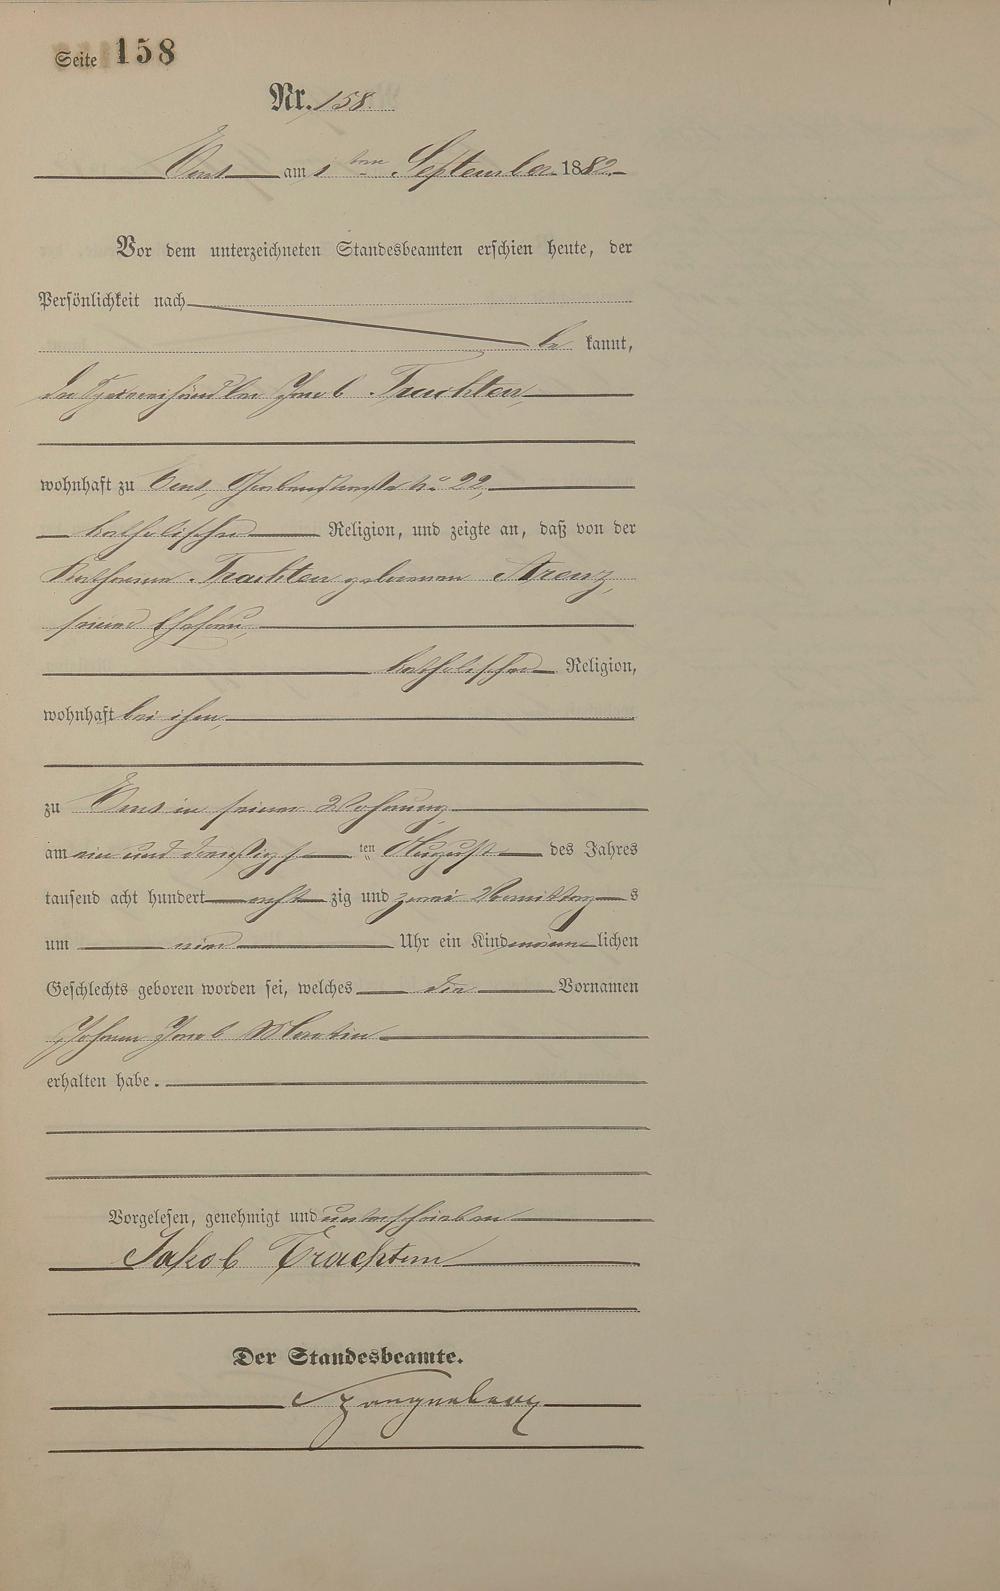 Seite 158
Nr. 158.
Ems am 1ten September 1882.
Vor dem unterzeichneten Standesbeamten erschien heute, der
Persönlichkeit nach
be kannt,
der Jacob Trachten,
wohnhaft zu Ems, No 22,
katholischer Religion, und zeigte an, daß von der
Katharina Trachten geborenen Arenz,
seiner Ehefrau,
katholischer Religion,
wohnhaft bei ihm,
zu Ems in seiner Wohnung
am ein und dreißigsten August des Jahres
tausend acht hundert acht zig und zwei Vormittags
um vier Uhr ein Kind männlichen
Geschlechts geboren worden sei, welches die Vornamen
Johann Jacob Martin
erhalten habe.
Vorgelesen, genehmigt und unterschrieben
Jakob Trachten
Der Standesbeamte.